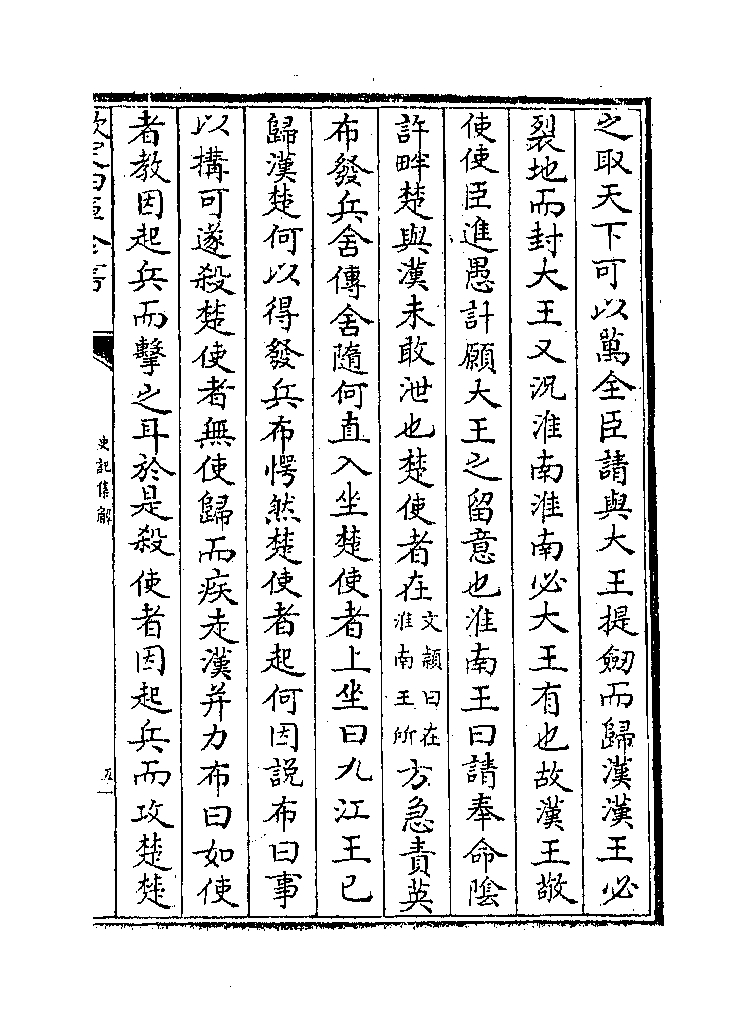 之取天下可以萬全臣請與大王提劒而歸漢漢王必
裂地而封大王又況淮南淮南必大王有也故漢王敬
使使臣進愚計願大王之留意也淮南王曰請奉命隂
許畔楚與漢未敢泄也楚使者在文穎曰在淮南王所方急責英
布發兵舍傳舍隨何直入坐楚使者上坐曰九江王已
歸漢楚何以得發兵布愕然楚使者起何因說布曰事
以搆可遂殺楚使者無使歸而疾走漢并力布曰如使
者教因起兵而擊之耳於是殺使者因起兵而攻楚楚
欽定四庫全書
史記集解
五